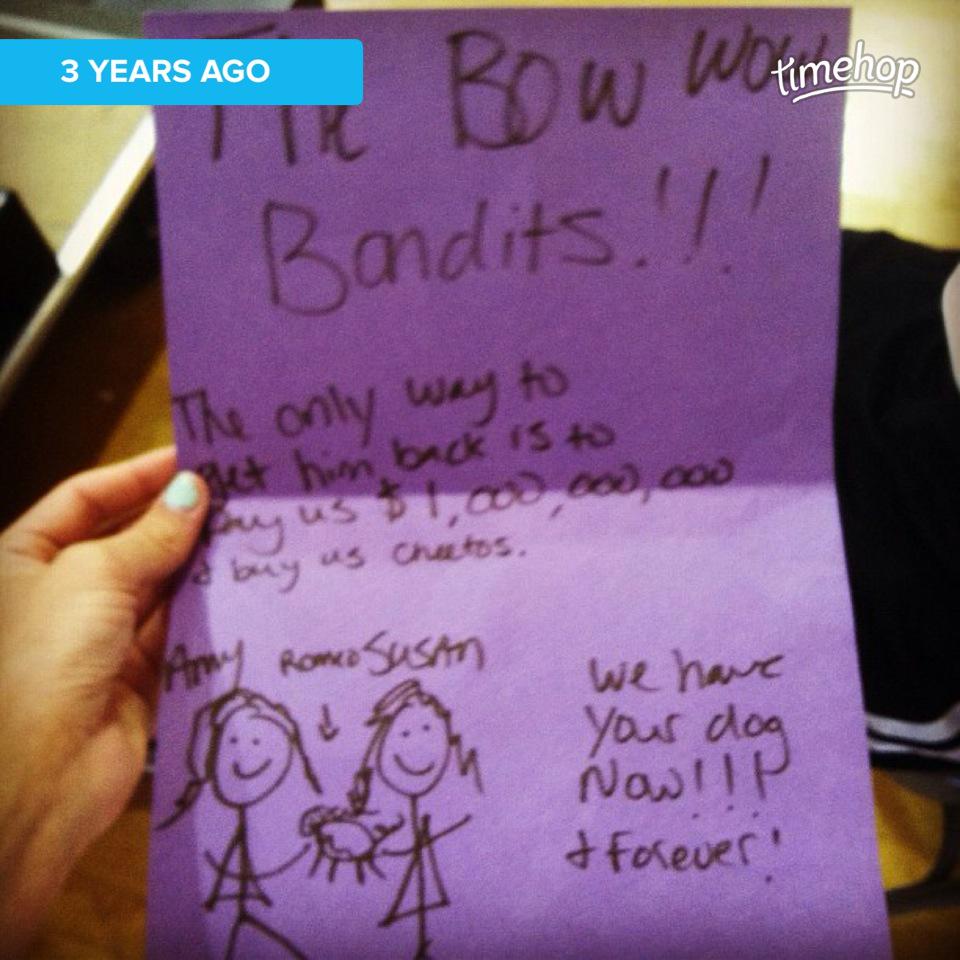 3 YEARS AGO
timehop
The Bow Wow
Bandits!!!
The only way to
get him back is to
pay us $1,000,000,000
& buy us cheetos.
Amy Romeo SusAn
We have
Your dog
Now!!!
& Forever!